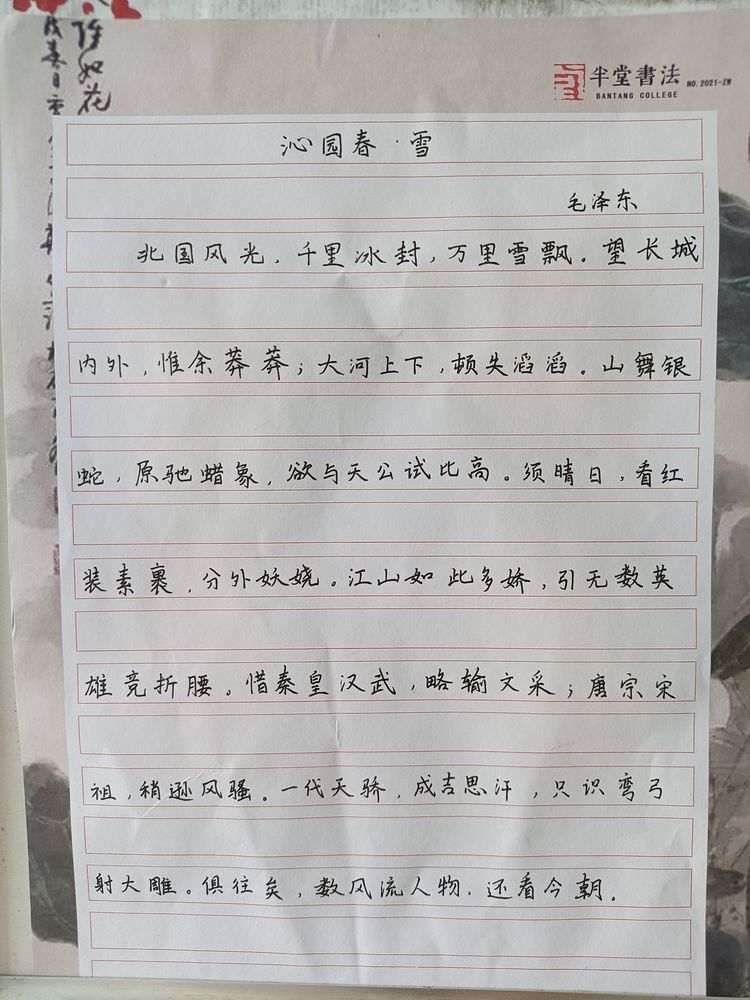 许如花
半堂書法
NO.2021-ZW
BANTANG COLLEGE
沁园春·雪
毛泽东
北国风光，千里冰封，万里雪飘。望长城
内外，惟余莽莽；大河上下，顿失滔滔。山舞银
蛇，原驰蜡象，欲与天公试比高。须晴日，看红
装素裹，分外妖娆。江山如此多娇，引无数英
雄竞折腰。惜秦皇汉武，略输文采；唐宗宋
祖，稍逊风骚。一代天骄，成吉思汗，只识弯弓
射大雕。俱往矣，数风流人物，还看今朝。